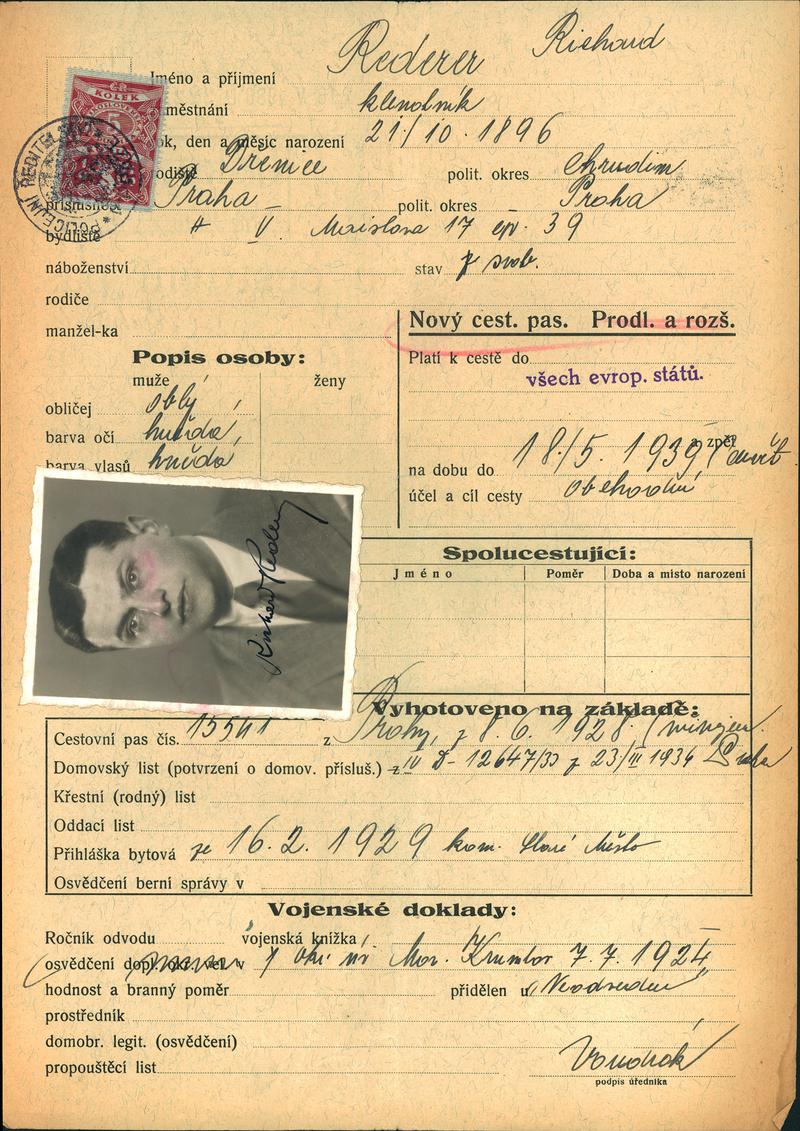 Rederer Richard
Jméno a příjmení
městnání klenotník
ok, den a měsíc narození 21/10. 1896
odiště Dřenice polit. okres Chrudim
příslušnost Praha polit. okres Praha
bydliště V. Maislova 17 čp. 39
náboženství stav svob.
rodiče
manžel-ka
Nový cest. pas. Prodl. a rozš.
Popis osoby:
muže ženy
obličej oblý
barva očí hnědá
barva vlasů hnědá
Platí k cestě do
všech evrop. států.
a zpět
na dobu do 18/5. 1939
účel a cíl cesty obchodní
ČR
KOLEK
5
POLICEJNÍ ŘEDITELSTVÍ
Richard Rederer
Spolucestující:
Jméno Poměr Doba a místo narození
Vyhotoveno na základě:
Cestovní pas čís. 15541 z Prahy, z 8. 6. 1928.
Domovský list (potvrzení o domov. přísluš.) z IV D- 12647/33 z 23/III 1934 Praha
Křestní (rodný) list
Oddací list
Přihláška bytová ze 16. 2. 1929 kom. Staré Město
Osvědčení berní správy v
Vojenské doklady:
Ročník odvodu vojenská knížka
osvědčení dopl. okr. vel. v Mor. Krumlov 7. 7. 1924
hodnost a branný poměr přidělen u Neodveden
prostředník
domobr. legit. (osvědčení)
propouštěcí list
Vondrák
podpis úředníka